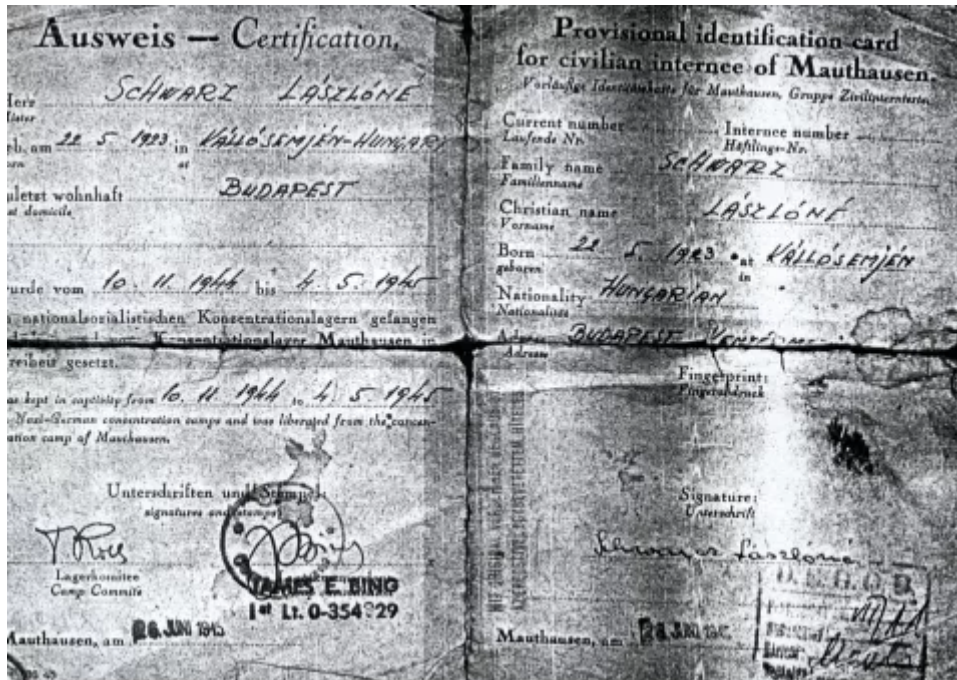 Ausweis — Certification.
SCHWARZ LÁSZLÓNÉ
22 5 1923 in KÁLLÓSEMJÉN-HUNGARY
at
wohnhaft BUDAPEST
domicile
vom 10. 11. 1944 bis 4. 5. 1945
nationalsozialistischen Konzentrationslagern gefangen
Konzentrationslager Mauthausen in
gesetzt.
kept in captivity from 10. 11. 1944 to 4. 5. 1945
Nazi-German concentration camps and was liberated from the concen-
camp of Mauthausen.
Unterschriften und Stempel:
signatures and stamps
Lagerkomitee
Camp Commite
JAMES E. BING
1st Lt. O-354 29
Mauthausen, am 26. JUNI 1945
Provisional identification card
for civilian internee of Mauthausen.
Vorläufige Identitätskarte für Mauthausen, Gruppe Zivilinternierte
Current number Internee number
Laufende Nr. Häftlings-Nr.
Family name SCHWARZ
Familienname
Christian name LÁSZLÓNÉ
Vorname
Born 22 5. 1923 at KÁLLÓSEMJÉN
geboren in
Nationality HUNGARIAN
Nationalität
BUDAPEST
Adresse
Fingerprint:
Fingerabdruck
Signature:
Unterschrift
Schwarz Lászlóné
D.E.G.O.B.
Mauthausen, am JUNI